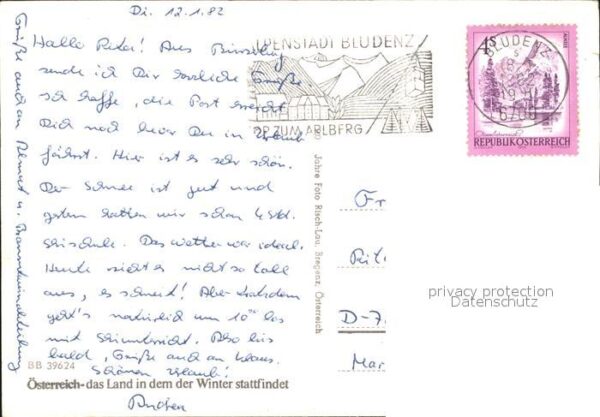 Di. 12.1.82
Hallo Rita! Aus Bürserberg
sende ich Dir herzliche Grüße.
Ich hoffe, die Post erreicht
Dich noch bevor Du in Urlaub
fährst. Hier ist es sehr schön.
Der Schnee ist gut und
gestern hatten wir schon 4 Std.
Skischule. Das Wetter war ideal.
Heute sieht es nicht so toll
aus, es schneit! Aber trotzdem
geht's natürlich um 10⁰⁰ los
mit Skiunterricht. Also bis
bald, Grüße auch an Klaus.
Schönen Urlaub!
Grüße auch an u.
BB 39624
Österreich-das Land in dem der Winter stattfindet
Jahre Foto Risch-Lau, Bregenz, Österreich
PENSTADT BLUDENZ
ZUM ARLBERG
BLUDENZ
6700
REPUBLIK ÖSTERREICH
Fr
Rita
D-7
Mar
privacy protection
Datenschutz